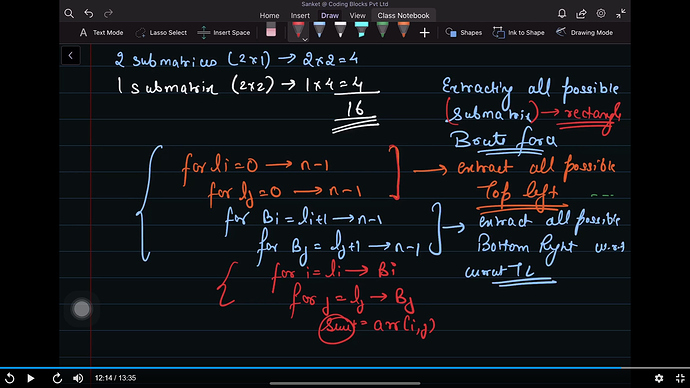 Sanket @ Coding Blocks Pvt Ltd
Home Insert Draw View Class Notebook
Text Mode Lasso Select Insert Space Shapes Ink to Shape Drawing Mode
2 submatrices (2x1) → 2x2=4
1 submatrix (2x2) → 1x4=4
16
Extracting all possible
(submatrix) → rectangle
Brute force
for li=0 → n-1
for lj=0 → n-1
→ extract all possible
Top left
for Bi = li+1 → n-1
for Bj = lj+1 → n-1
→ extract all possible
Bottom Right w.r.t
current TL
for i=li → Bi
for j=lj → Bj
sum += arr(i,j)
12:14 / 13:35